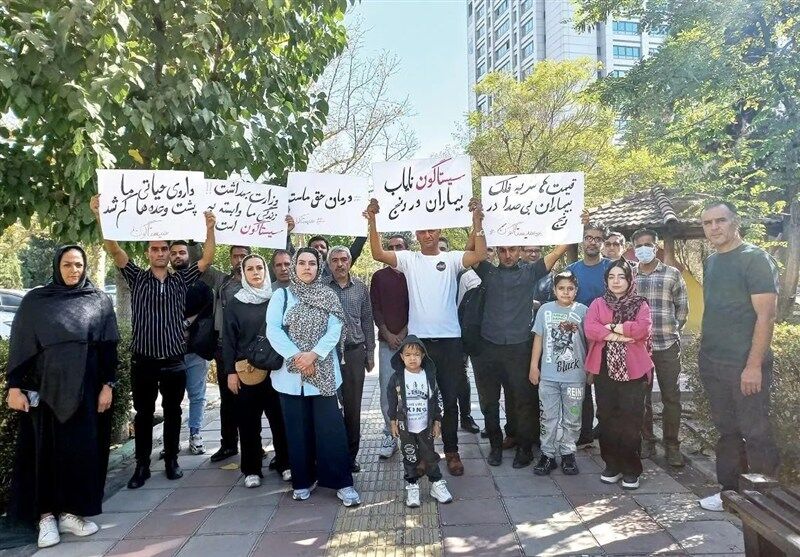 قیمت ها سر به فلک
بیماران بی صدا در
رنج
سیستاگون نایاب
بیماران در رنج
درمان حق ماست
وزارت بهداشت !!
زندگی ما وابسته به
سیستاگون است
داروی حیاتی ما
پشت وعده ها گم شد
Black